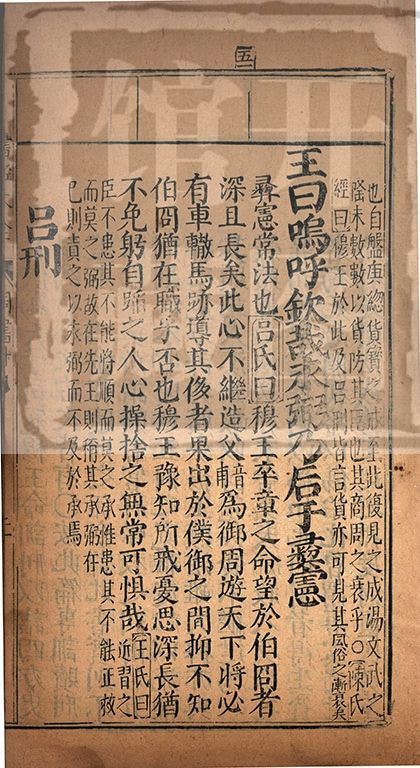 五一
也自盤庚總貨寶之戒至此復見之成湯文武之
隆未數數以貨防其臣也其商周之衰乎○陳氏
經曰穆王於此及呂刑皆言貨亦可見其風俗之漸衰矣
王曰嗚呼欽哉永弼乃后于彞憲
彞憲常法也呂氏曰穆王卒章之命望於伯冏者
深且長矣此心不繼造父音甫為御周遊天下將必
有車轍馬跡導其侈者果出於僕御之間抑不知
伯冏猶在職乎否也穆王豫知所戒憂思深長猶
不免躬自蹈之人心操捨之無常可懼哉王氏曰近習之
臣不患其不能將順而莫之承惟患其不能正救
而莫之弼故在先王則稱其承弼在
己則責之以永弼而不及於承焉
呂刑